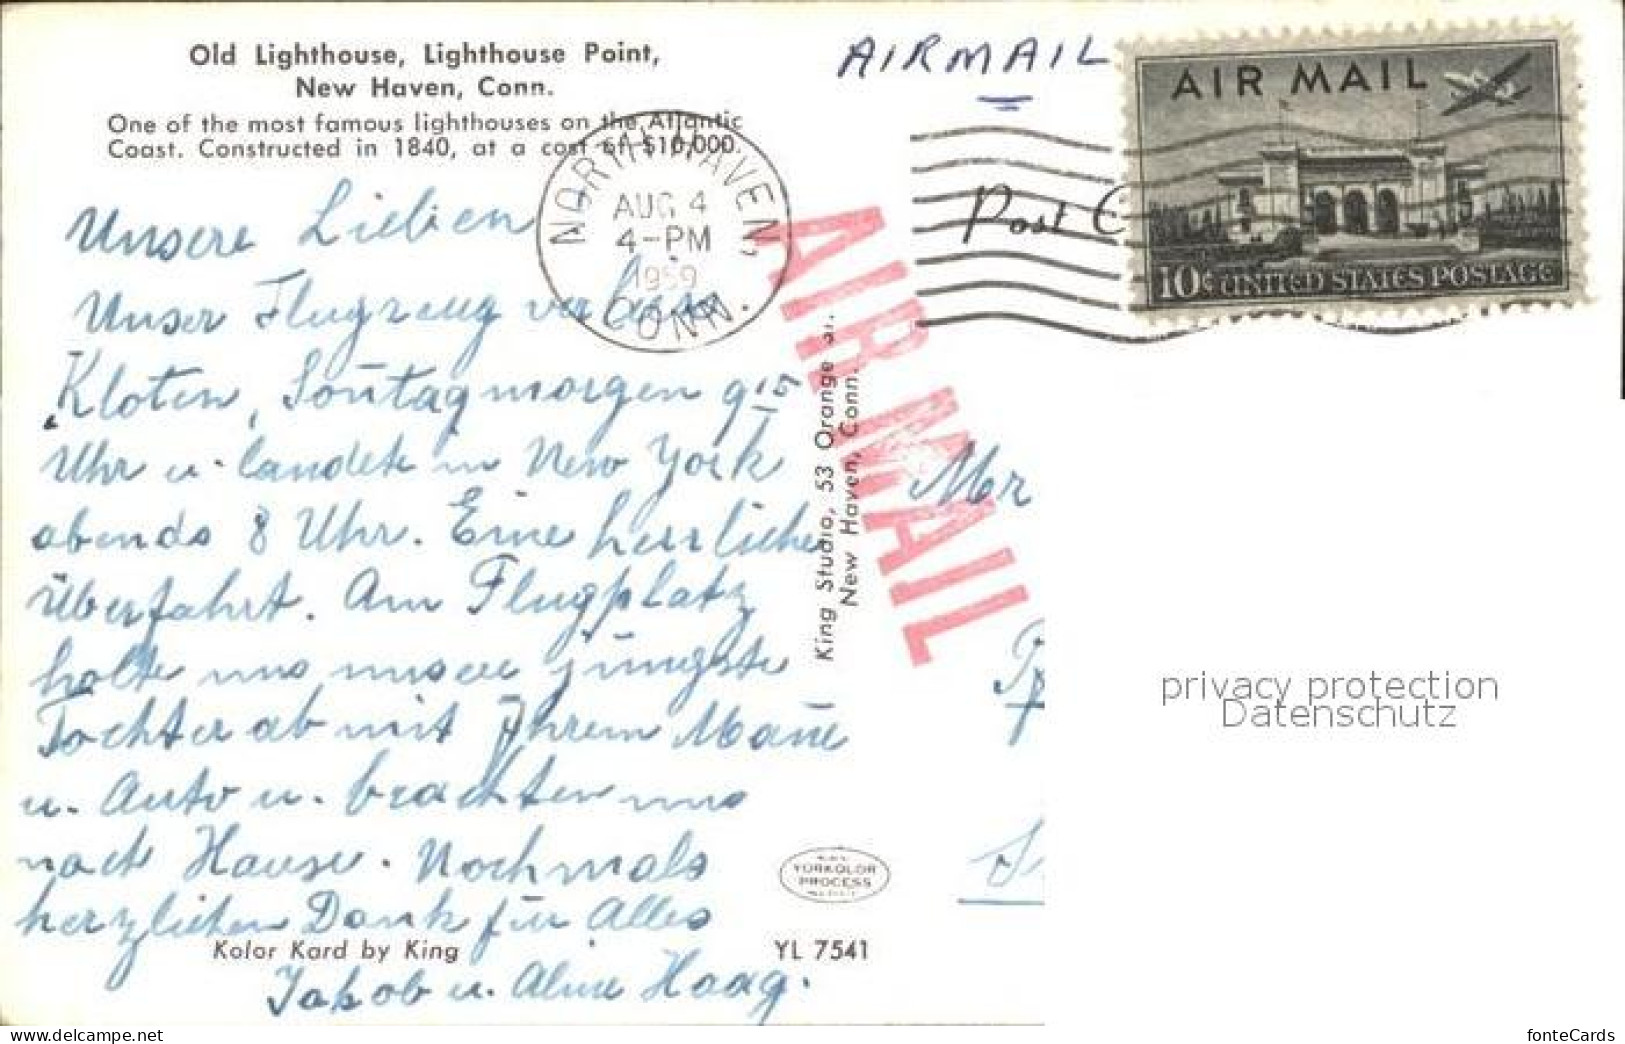 Old Lighthouse, Lighthouse Point,
New Haven, Conn.
One of the most famous lighthouses on the Atlantic
Coast. Constructed in 1840, at a cost of $10,000.
AIRMAIL
AIR MAIL
10¢ UNITED STATES POSTAGE
NORTH HAVEN,
AUG 4
4-PM
1959
CONN.
Post C
AIR MAIL
Unsere Lieben
Unser Flugzeug verliess
Kloten, Sonntagmorgen 9 15
Uhr u. landete in New York
abends 8 Uhr. Eine herrliche
Überfahrt. Am Flugplatz
holte uns unsere jüngste
Tochter ab mit Ihrem Mane
u. Auto u. brachten uns
nach Hause. Nochmals
herzlichen Dank für Alles
Jakob u. Aline Haag.
Mr
King Studio, 53 Orange St.,
New Haven, Conn.
YORKOLOR
PROCESS
Kolor Kard by King
YL 7541
privacy protection
Datenschutz
www.delcampe.net
fonteCards